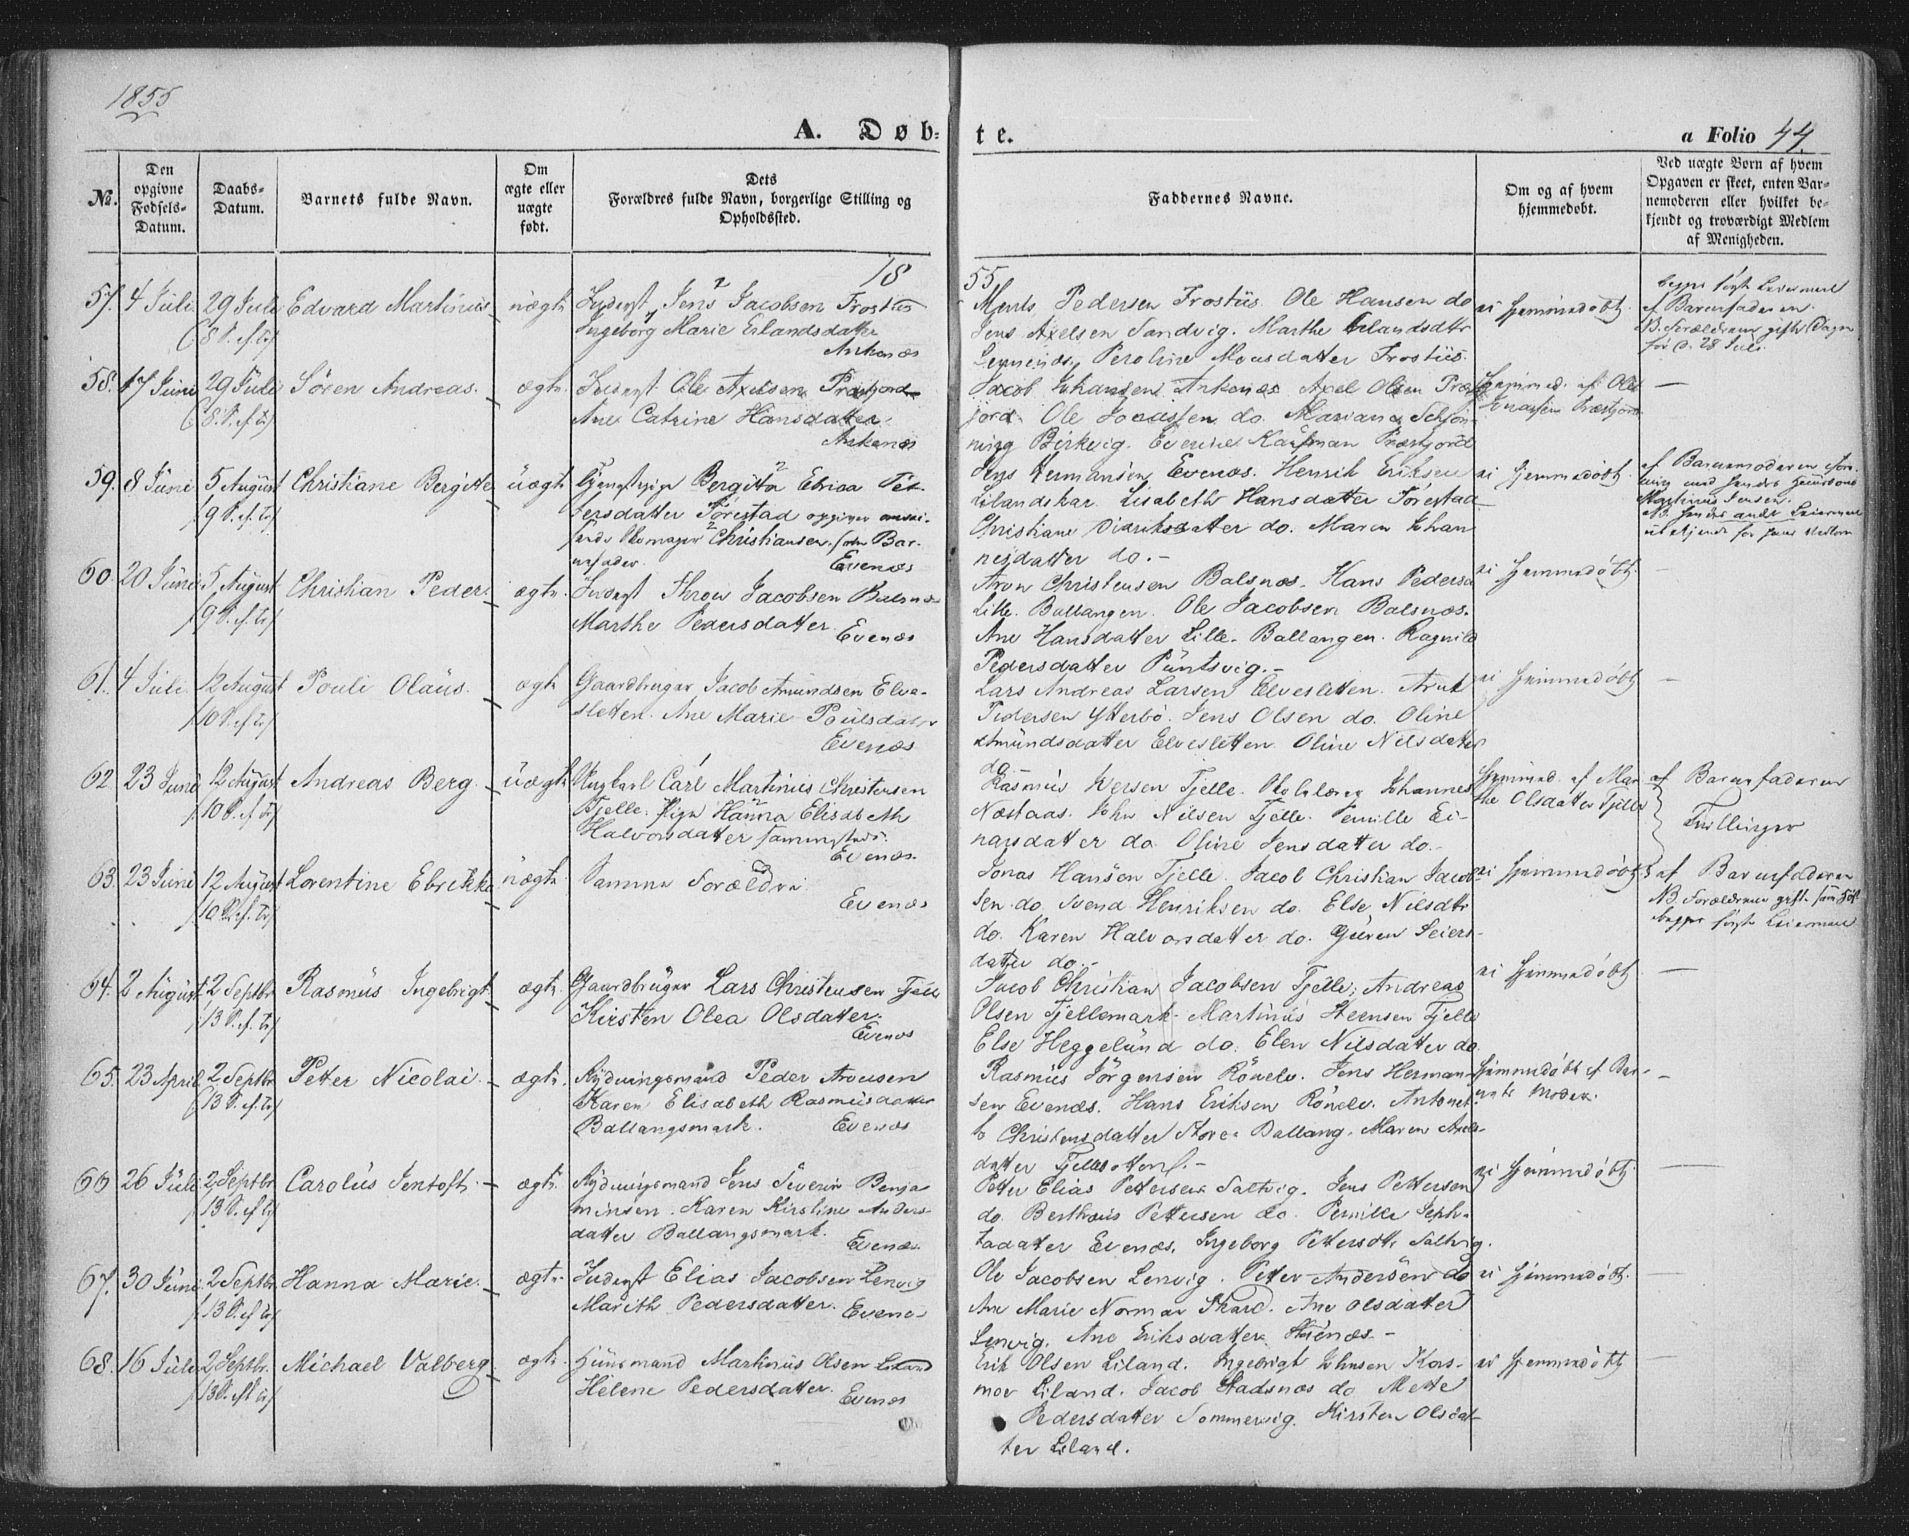 1855
A. Døb-
te.
a Folio 44.
№.
Den
opgivne
Fødsels-
Datum.
Daabs-
Datum.
Barnets fulde Navn.
Om
ægte eller
uægte
født.
Dets
Forældres fulde Navn, borgerlige Stilling og
Opholdssted.
Faddernes Navne.
Om og af hvem
hjemmedøbt.
Ved uægte Børn af hvem
Opgaven er skeet, enten Bar-
nemoderen eller hvilket be-
kjendt og troværdigt Medlem
af Menigheden.
18
55
57. 4 Juli 29 Juli Edvard Martinus uægte Inderst Jens Jacobsen Frostüs
8 S. ef. Tr. Ingeborg Marie Erlandsdatter
Ankenæs
Ments Pedersen Frostüs. Ole Hansen do
Jens Axelsen Sandvig. Marthe Erlandsdtr
Peroline Monsdatter Frostüs.
ei hjemmedøbt
begges første Leiermaal
af Barnefaderen.
NB. Forældrene gifte Dagen
før d. 28 Juli
58. 17 Juni 29 Juli Søren Andreas. ægte Inderst Ole Axelsen Præstjord
8 S. ef. Tr. Ane Catrine Hansdatter
Ankenæs
Jacob Johansen Ankenæs Axel Olsen Præst
jord. Ole Jonassen do. Mariane Schjøn-
ning Birkvig. Everine Kaufman Præstjord
hjemmed. af Ole
Jonassen Præstjord
59. 8 Juni 5 August Christiane Bergitte uægte Tjenestepige Bergitta Ebrica Pet-
9 S. ef. Tr. tersdatter Tørestad opgiver omrei-
sende Skomager Christiansen som Bar-
nefader. Evenæs
Jens Hermansen Evenæs. Henrik Eriksen
Lilandskar. Lisabeth Hansdatter Tørestad
Christiane Didriksdatter do. Maren Johan
nesdatter do.-
ei hjemmedøbt
af Barnemoderen
Martinus Jensen.
NB. hendes andet Leiermaal
60. 20 Juni 5 August Christian Peder. ægte Inderst Aron Jacobsen Balsnæs
9 S. ef. Tr. Marthe Pedersdatter. Evenæs
Aron Christensen Balsnæs. Hans Pedersen
Lille Ballangen. Ole Jacobsen Balsnæs.
Ane Hansdatter Lille-Ballangen. Ragnild
Pedersdatter Püntsvig.-
ei hjemmedøbt.
61. 4 Juli 12 August Pouli Olaüs. ægte Gaardbruger Jacob Amundsen Elve-
10 S. ef. Tr. sletten. Ane Marie Poulsdatter
Evenæs
Lars Andreas Larsen Elvesletten. Arnt
Pedersen Ytterbö. Jens Olsen do. Oline
Amündsdatter Elvesletten. Oline Nilsdatter
do.
ei hjemmedøbt
62. 23 Juni 12 August Andreas Berg. uægte Ungkarl Carl Martinus Christensen
10 S. ef. Tr. Tjelle. Pige Hanna Elisabeth
Halvorsdatter sammesteds.
Evenæs.
Rasmus Iversen Tjelle. Skolelærer Johannes
Næstaas. John Nilsen Tjelle. Pernille Ei-
narsdatter do. Oline Jensdatter do.-
hjemmed. af Mar-
the Olsdatter Tjelle
af Barnefaderen
Tvillinger
63. 23 Juni 12 August Lorentine Ebrikke uægte Samme Forældre
10 S. ef. Tr. Evenæs
Jonas Hansen Tjelle. Jacob Christian Jacob-
sen do. Svend Henriksen do. Else Nilsdtr
do. Karen Halvorsdatter do. Guren Seiers-
datter do.-
ei hjemmedøbt
af Barnefaderen
NB. Forældrene gifte samme
begges første Leiermaal
64. 2 August 2 Septbr Rasmus Ingebrigt ægte Gaardbrüger Lars Christensen Tjelle
13 S. ef. Tr. Kirsten Olea Olsdatter.
Evenæs
Jacob Christian Jacobsen Tjelle; Andreas
Olsen Tjellemark. Martinus Steensen Tjelle
Else Heggelund do. Elen Nilsdatter do
ei hjemmedøbt
65. 23 April 2 Septbr Petter Nicolai. ægte. Rydningsmand Peder Aronsen
13 S. ef. Tr. Karen Elisabeth Rasmusdatter
Ballangsmark. Evenæs
Rasmus Jörgensen Rönelv. Jens Herman-
sen Evenæs. Hans Eriksen Rönelv. Antonet-
te Christensdatter Store Ballang. Maren Axels-
datter Tjelleseter.-
hjemmedøbt af Bar-
nets Moder.
66 26 Juli 2 Septbr Carolüs Jentoft. ægte. Rydningsmand Jens Severin Benja
13 S. ef. Tr. minsen. Karen Kirstine Anders-
datter Ballangsmark. Evenæs.
Petter Elias Pettersen Saltvig. Jens Pettersen
do. Berthæus Pettersen do. Pernille Seph-
tadatter Evenæs. Ingeborg Pettersdtr Saltvig.
ei hjemmedøbt
67. 30 Juni 2 Septbr Hanna Marie. ægte Inderst Elias Jacobsen Lenvig
13 S. ef. Tr. Marith Pedersdatter. Evenæs
Ole Jacobsen Lenvig. Petter Andersen do
Ane Marie Normar Skard. Ane Olsdatter
Lenvig. Ane Eriksdatter Stünæs.-
ei hjemmedøbt.
68. 16 Juli 2 Septbr. Michael Valberg ægte. Huusmand Martinus Olsen Liland
13 S. ef. Tr. Helene Pedersdatter. Evenæs
Erik Olsen Liland. Ingebrigt Johnsen Kors-
moe Liland. Jacob Stadsnæs do. Mette
Pedersdatter Sommervig. Kirsten Olsdat-
ter Liland.
ei hjemmedøbt